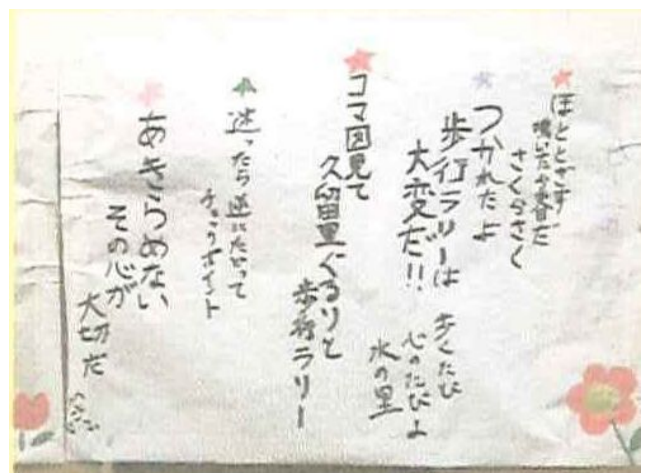 ほととぎす
鳴いたら春だ
さくらさく
つかれたよ
歩行ラリーは
大変だ!!
歩くたび
心のたびよ
水の里
コマ図見て
久留里ぐるりと
歩行ラリー
迷ったら逆にたどって
チェックポイント
あきらめない
その心が
大切だ